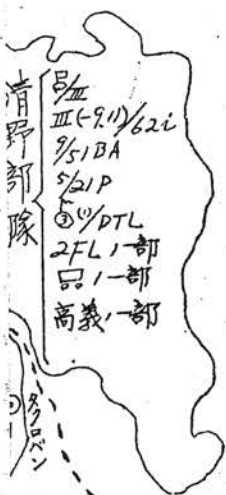 清野部隊
呂/Ⅲ
Ⅲ(-9.11)/62i
9/51BA
5/21P
③(1)/DTL
2FL,一部
,一部
高義,一部
タクロバン